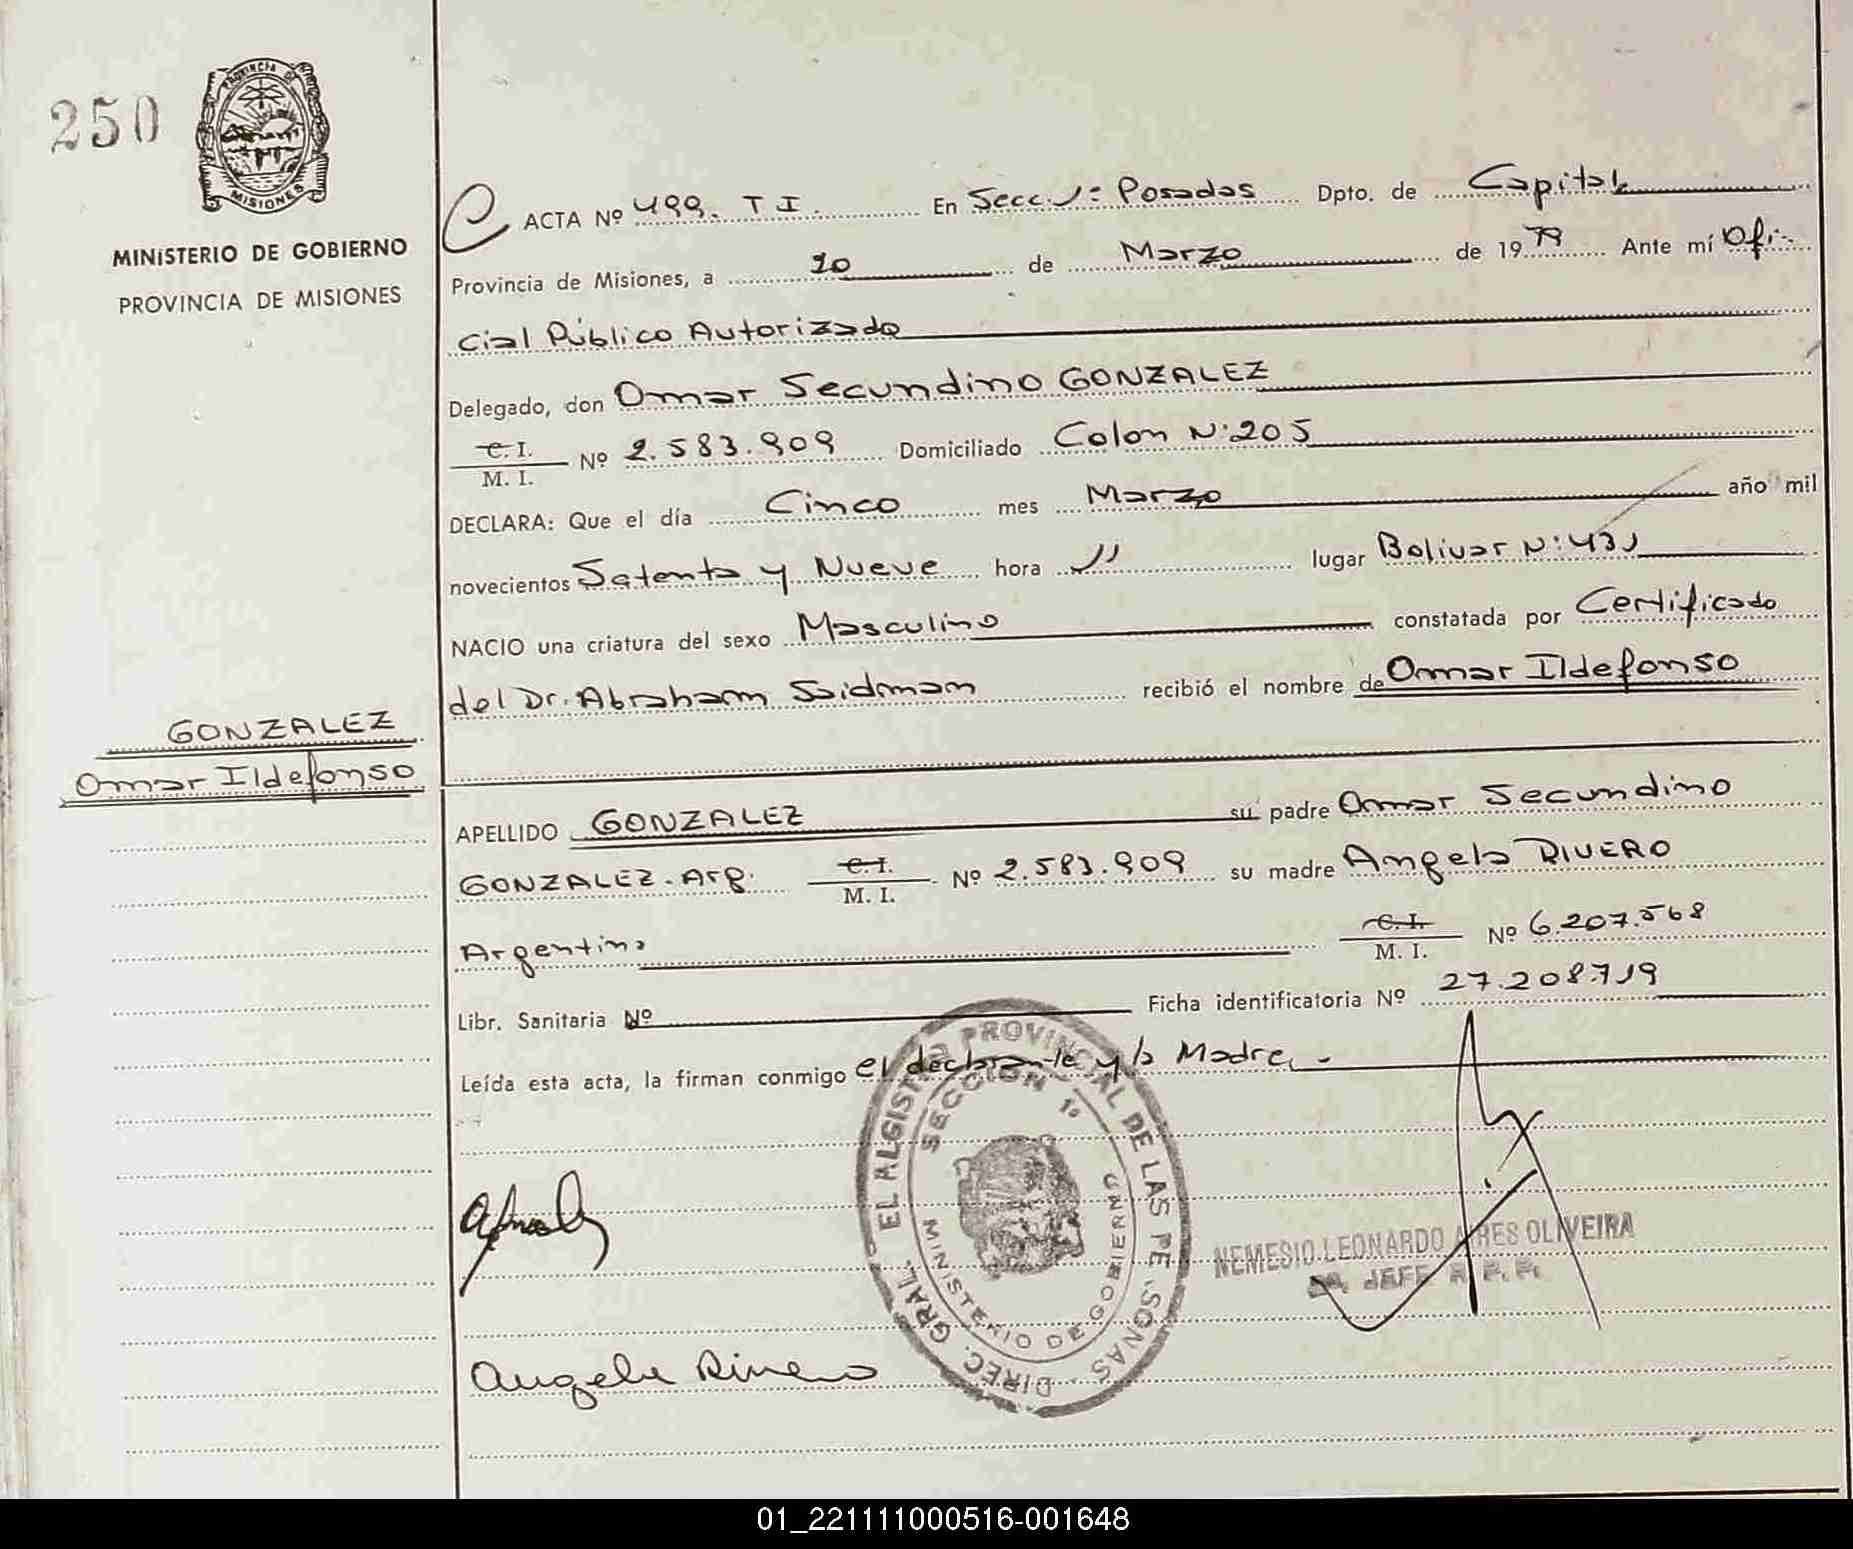 250
PROVINCIA DE
MISIONES
MINISTERIO DE GOBIERNO
PROVINCIA DE MISIONES
ACTA Nº 499. T I. En Secc. 1: Posadas Dpto. de Capital
Provincia de Misiones, a 20 de Marzo de 1979 Ante mí Ofi-
cial Público Autorizado
Delegado, don Omar Secundino GONZALEZ
C. I.
M. I. Nº 2.583.909 Domiciliado Colon N:205
DECLARA: Que el día Cinco mes Marzo año mil
novecientos Setenta y Nueve hora 11 lugar Bolivar N:431
NACIO una criatura del sexo Masculino constatada por Certificado
del Dr. Abraham Saidman recibió el nombre de Omar Ildefonso
GONZALEZ
Omar Ildefonso
APELLIDO GONZALEZ su padre Omar Secundino
GONZALEZ. Arg. C. I. M. I. Nº 2.583.909 su madre Angela RIVERO
Argentina C. I. M. I. Nº 6.207.568
Libr. Sanitaria Nº Ficha identificatoria Nº 27.208.719
Leída esta acta, la firman conmigo el declarante y la Madre. -
SECCION 1º
MINISTERIO DE GOBIERNO
PROVINCIAL DE LAS PE SONAS
DIREC. GRAL.
NEMESIO LEONARDO AIRES OLIVEIRA
JEFE R. P. P.
Angela Rivero
01_221111000516-001648